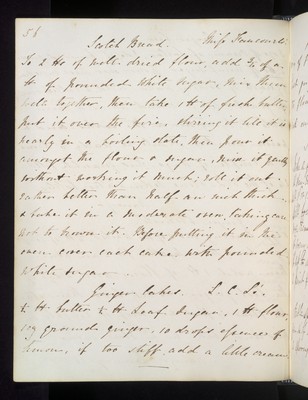 56
Scotch Bread. Miss
To 2 lb of well dried flour, add 3/4 of a
lb of pounded White Sugar, mix them
well together, then take 1 lb of fresh butter
put it over the fire, stirring it till it is
nearly in a boiling state, then pour it
amongst the flour & sugar, mix it gently
without working it much; roll it out
rather better than half an inch thick
& bake it in a moderate oven, taking care
not to brown it. Before putting it in the
oven cover each cake with pounded
White Sugar.
Ginger Cakes.
1/2 lb butter 1/2 lb Loaf Sugar, 1 lb flour,
ground ginger, 10 drops essence of
lemon, if too stiff add a little cream